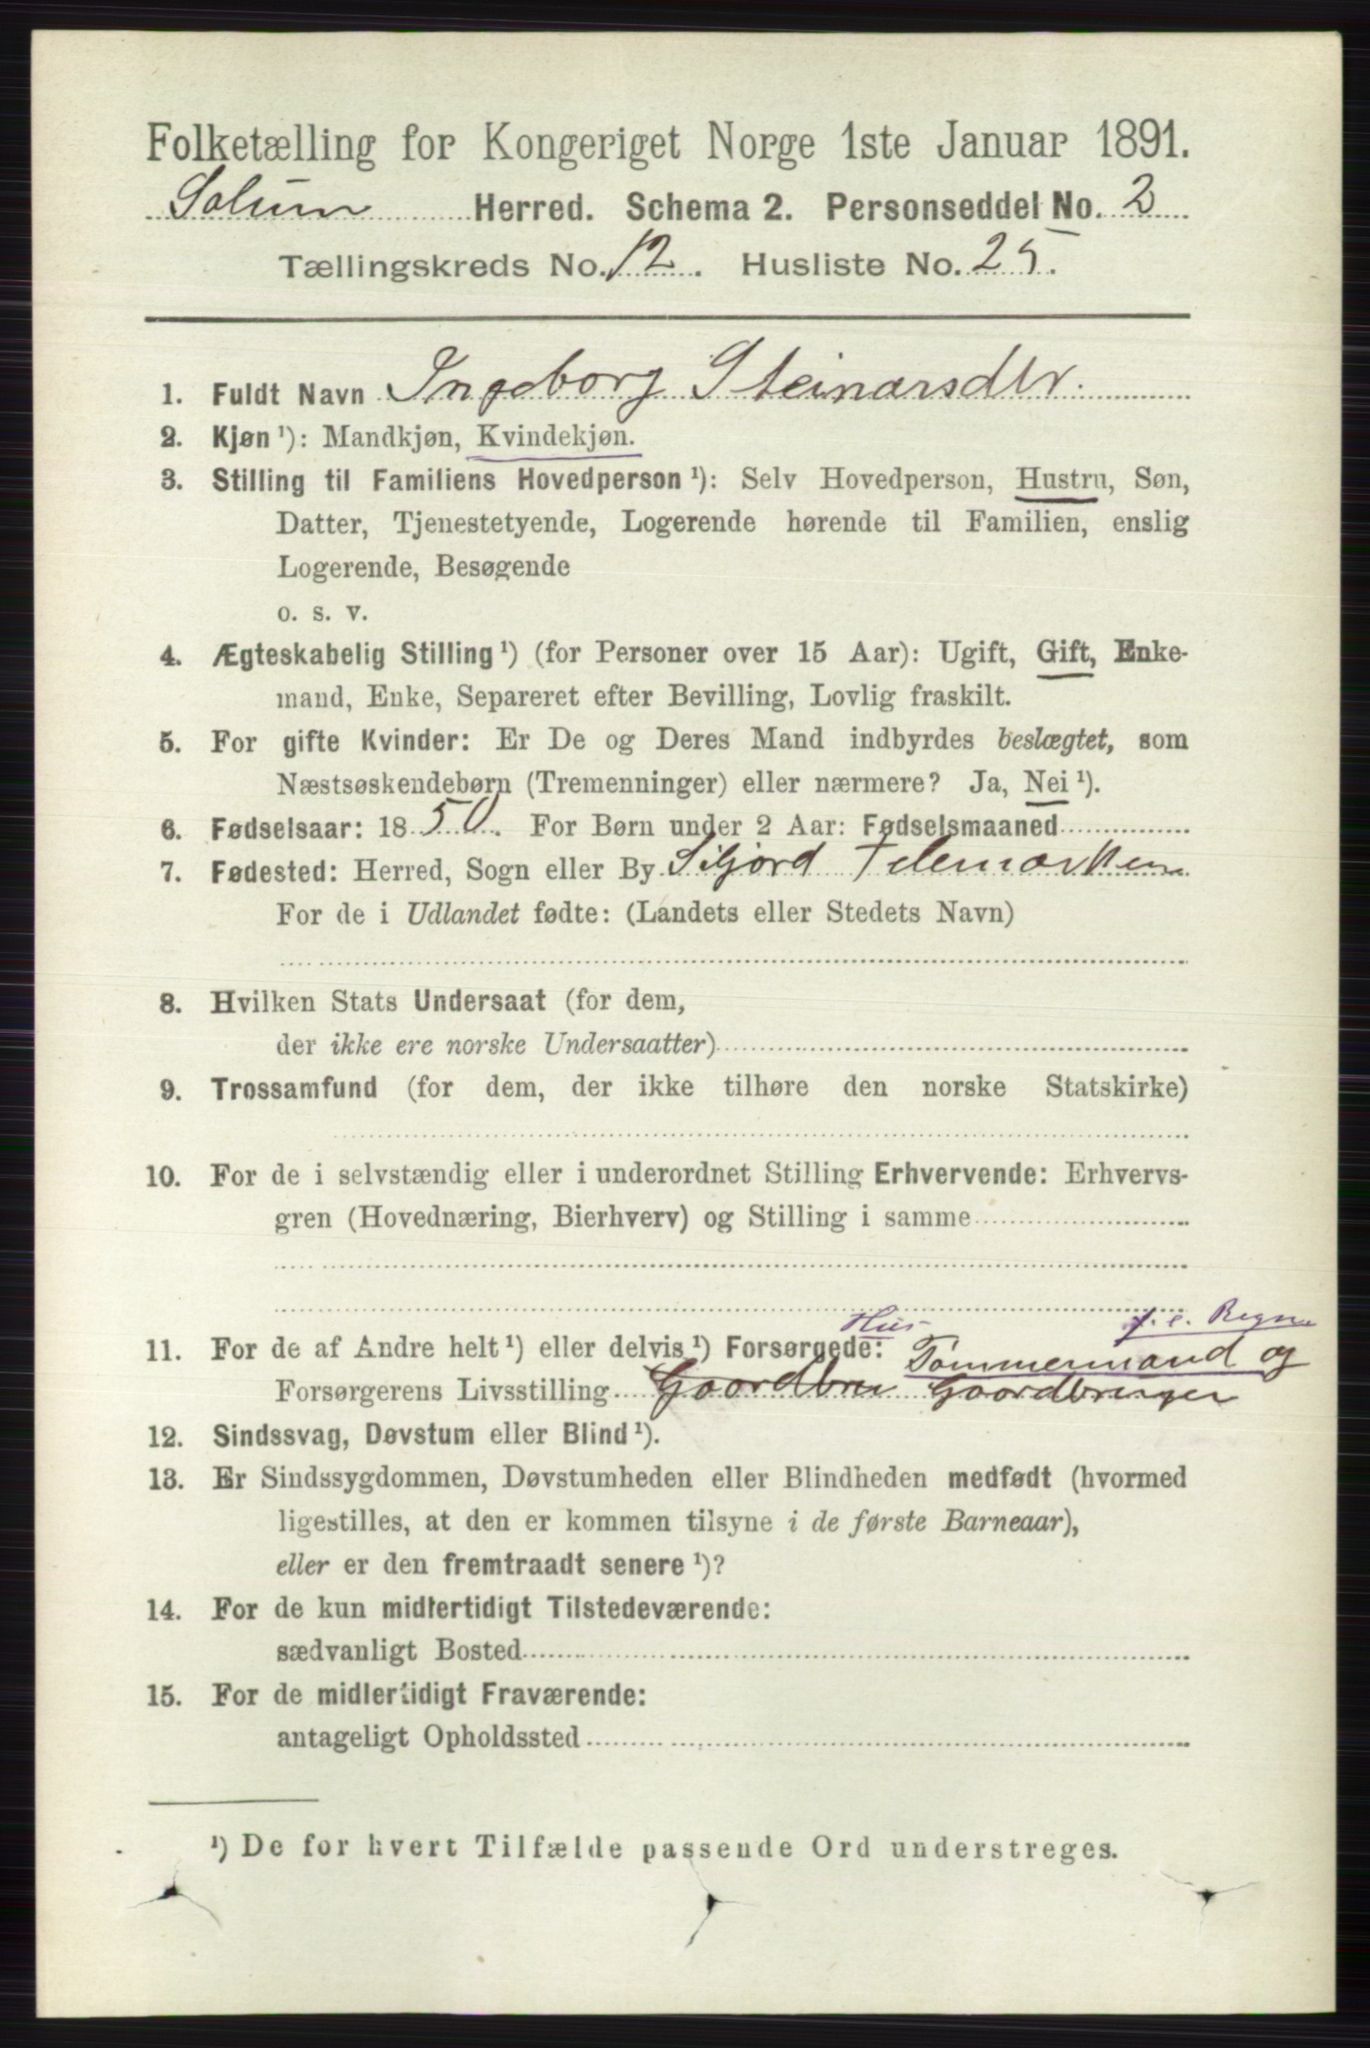 Folketælling for Kongeriget Norge 1ste Januar 1891.
Solum Herred. Schema 2. Personseddel No. 2
Tællingskreds No. 12. Husliste No. 25.
1. Fuldt Navn Ingeborg Steinarsdtr.
2. Kjøn ¹): Mandkjøn, Kvindekjøn.
3. Stilling til Familiens Hovedperson ¹): Selv Hovedperson, Hustru, Søn,
Datter, Tjenestetyende, Logerende hørende til Familien, enslig
Logerende, Besøgende
o. s. v.
4. Ægteskabelig Stilling ¹) (for Personer over 15 Aar): Ugift, Gift, Enke-
mand, Enke, Separeret efter Bevilling, Lovlig fraskilt.
5. For gifte Kvinder: Er De og Deres Mand indbyrdes beslægtet, som
Næstsøskendebørn (Tremenninger) eller nærmere? Ja, Nei ¹).
6. Fødselsaar: 1850. For Børn under 2 Aar: Fødselsmaaned
7. Fødested: Herred, Sogn eller By Siljord Telemarken
For de i Udlandet fødte: (Landets eller Stedets Navn)
8. Hvilken Stats Undersaat (for dem,
der ikke ere norske Undersaatter)
9. Trossamfund (for dem, der ikke tilhøre den norske Statskirke)
10. For de i selvstændig eller i underordnet Stilling Erhvervende: Erhvervs-
gren (Hovednæring, Bierhverv) og Stilling i samme
Hus f. e. Regn
11. For de af Andre helt ¹) eller delvis ¹) Forsørgede: Tømmermand og
Forsørgerens Livsstilling Gaardbru Gaardbruger
12. Sindssvag, Døvstum eller Blind ¹).
13. Er Sindssygdommen, Døvstumheden eller Blindheden medfødt (hvormed
ligestilles, at den er kommen tilsyne i de første Barneaar),
eller er den fremtraadt senere ¹)?
14. For de kun midlertidigt Tilstedeværende:
sædvanligt Bosted
15. For de midlertidigt Fraværende:
antageligt Opholdssted
¹) De for hvert Tilfælde passende Ord understreges.